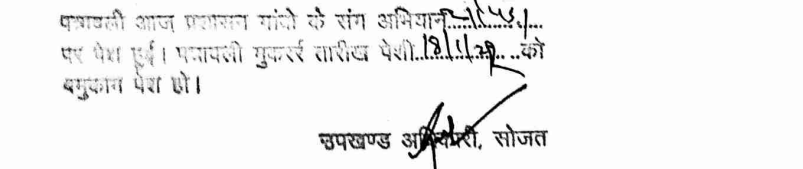 पत्रावली आज प्रशासन गांवो के संग अभियान
पर पेश हुई। पत्रावली मुकर्रर तारीख पेशी 18/1/22 को
बमुकाम पेश हो।
उपखण्ड अधिकारी, सोजत